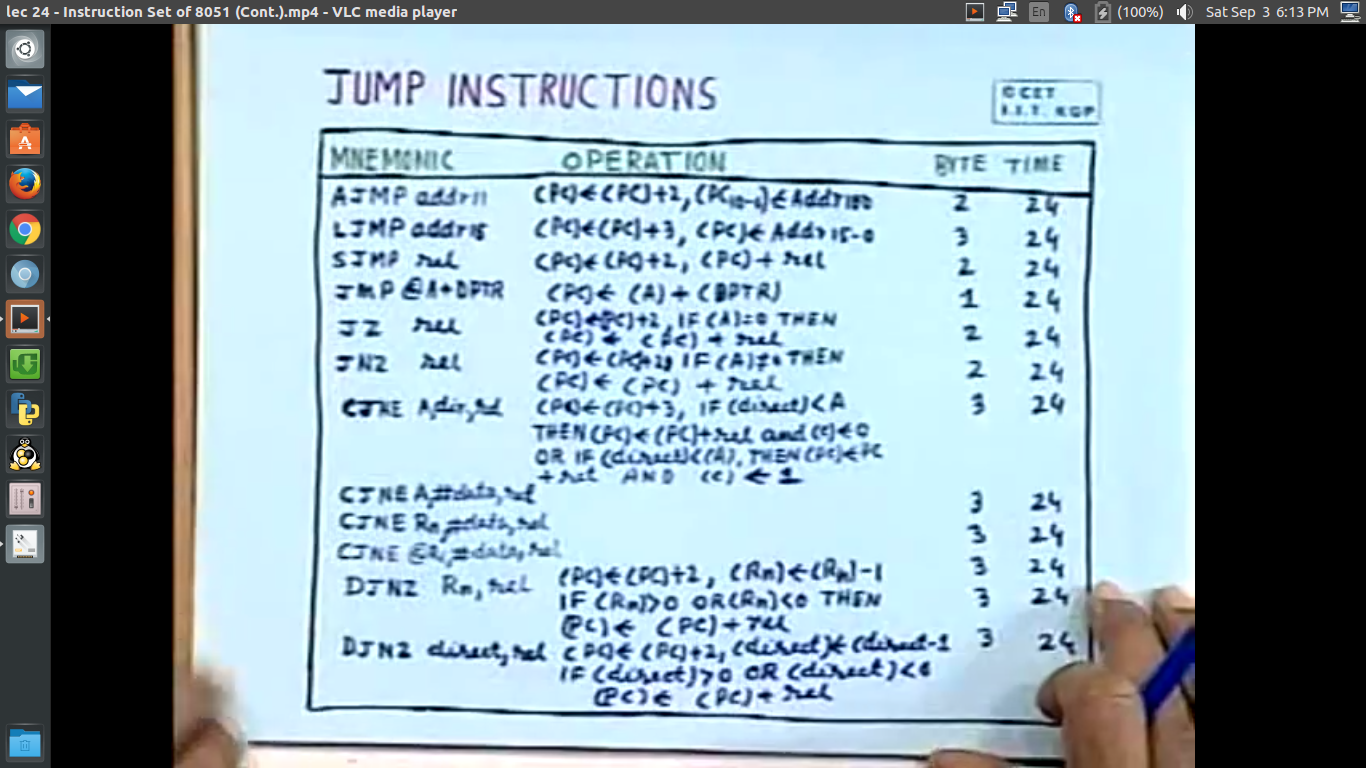 lec 24 - Instruction Set of 8051 (Cont.).mp4 - VLC media player
En (100%) Sat Sep 3 6:13 PM
JUMP INSTRUCTIONS
©CET
I.I.T. KGP
MNEMONIC OPERATION BYTE TIME
AJMP addr11 (PC)←(PC)+2, (PC10-0)←Addr10-0 2 24
LJMP addr15 (PC)←(PC)+3, (PC)←Addr15-0 3 24
SJMP rel (PC)←(PC)+2, (PC)+rel 2 24
JMP @A+DPTR (PC)← (A)+(DPTR) 1 24
JZ rel (PC)←(PC)+2, IF (A)=0 THEN
(PC) ← (PC) + rel 2 24
JNZ rel (PC)←(PC)+2, IF (A)≠0 THEN
(PC)← (PC) + rel 2 24
CJNE A,dir,rel (PC)←(PC)+3, IF (direct)<A 3 24
THEN (PC)←(PC)+rel and (C)←0
OR IF (direct)<(A), THEN (PC)←PC
+rel AND (C)←1
CJNE A,#data,rel 3 24
CJNE Rn,#data,rel 3 24
CJNE @Ri,#data,rel 3 24
DJNZ Rn,rel (PC)←(PC)+2, (Rn)←(Rn)-1
IF (Rn)>0 OR (Rn)<0 THEN 3 24
(PC)← (PC)+rel
DJNZ direct,rel (PC)←(PC)+2, (direct)←(direct-1 3 24
IF (direct)>0 OR (direct)<0
(PC)← (PC)+rel